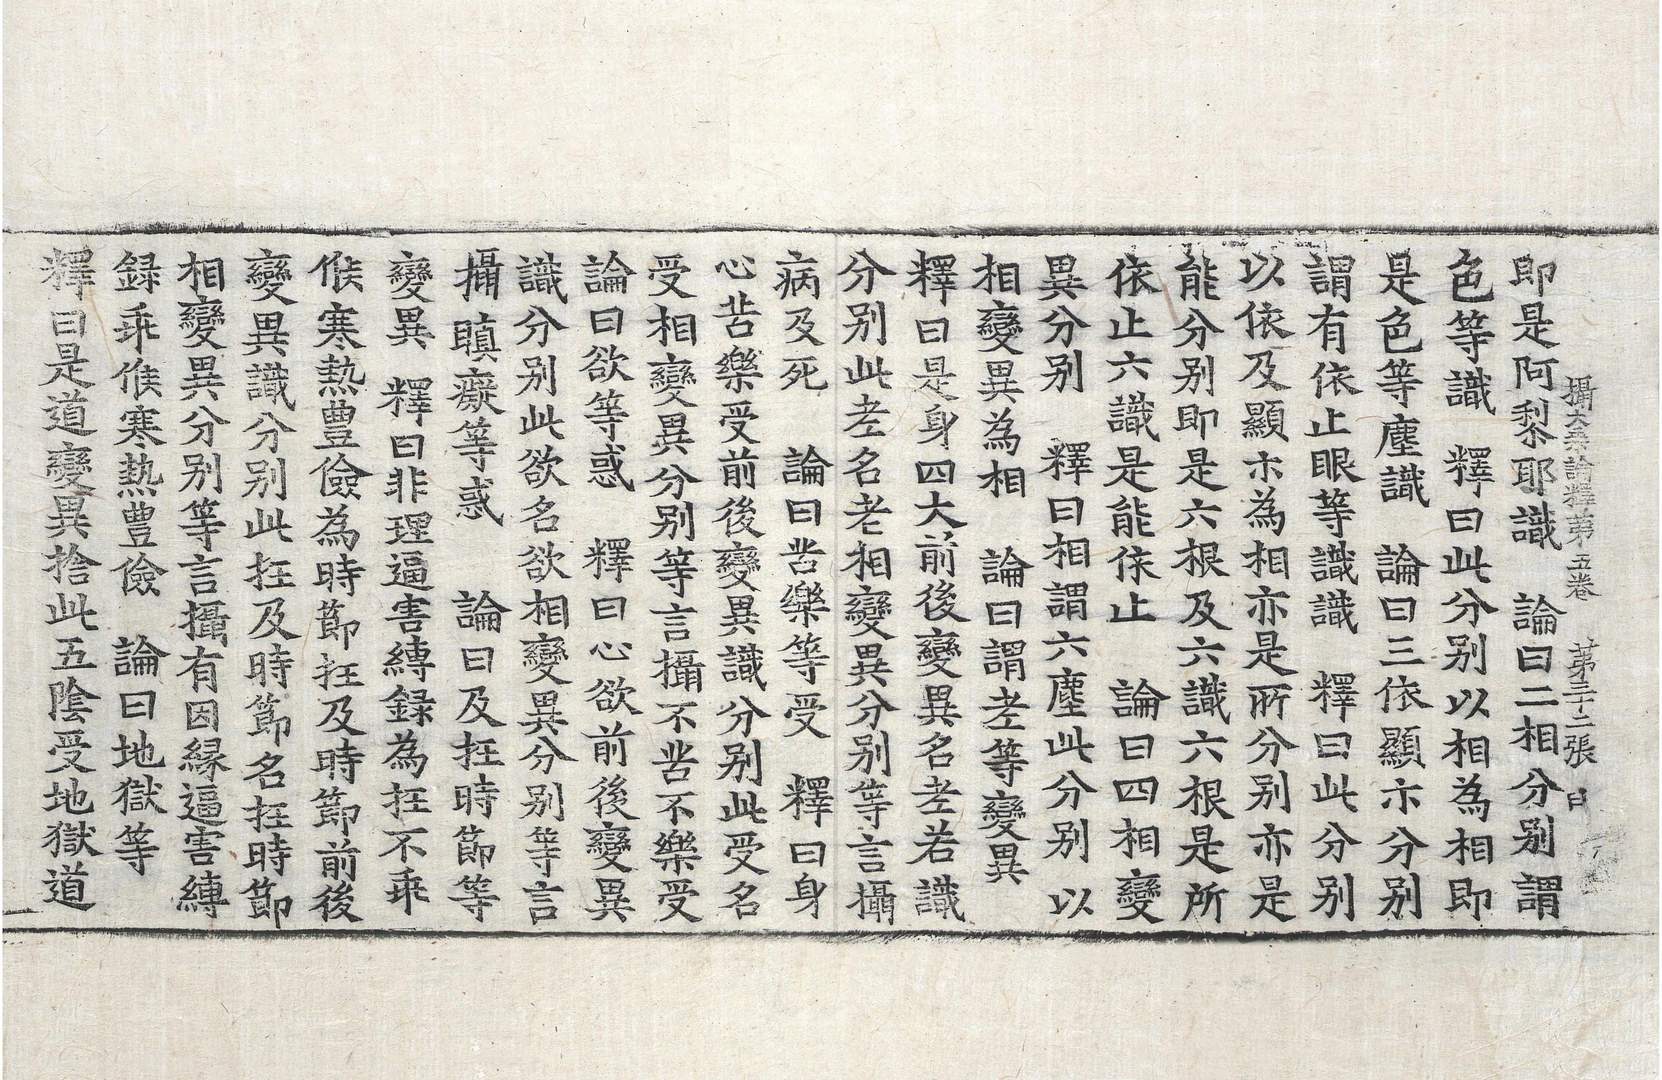 攝大乗論釋苐五卷　苐三十二張　日
即是阿梨耶識　論曰二相分別謂
色等識　釋曰此分別以相為相即
是色等塵識　論曰三依顯示分別
謂有依止眼等識識　釋曰此分別
以依及顯示為相亦是所分別亦是
能分別即是六根及六識六根是所
依止六識是能依止　論曰四相變
異分別　釋曰相謂六塵此分別以
相變異為相　論曰謂老等變異
釋曰是身四大前後變異名老若識
分別此老名老相變異分別等言攝
病及死　論曰苦樂等受　釋曰身
心苦樂受前後變異識分別此受名
受相變異分別等言攝不苦不樂受
論曰欲等惑　釋曰心欲前後變異
識分別此欲名欲相變異分別等言
攝瞋癡等惑　論曰及抂時節等
變異　釋曰非理逼害縛録為抂不乖
候寒熱豊儉為時節抂及時節前後
變異識分別此抂及時節名抂時節
相變異分別等言攝有因緣逼害縛
録乖候寒熱豊儉　論曰地獄等
釋曰是道變異捨此五陰受地獄道